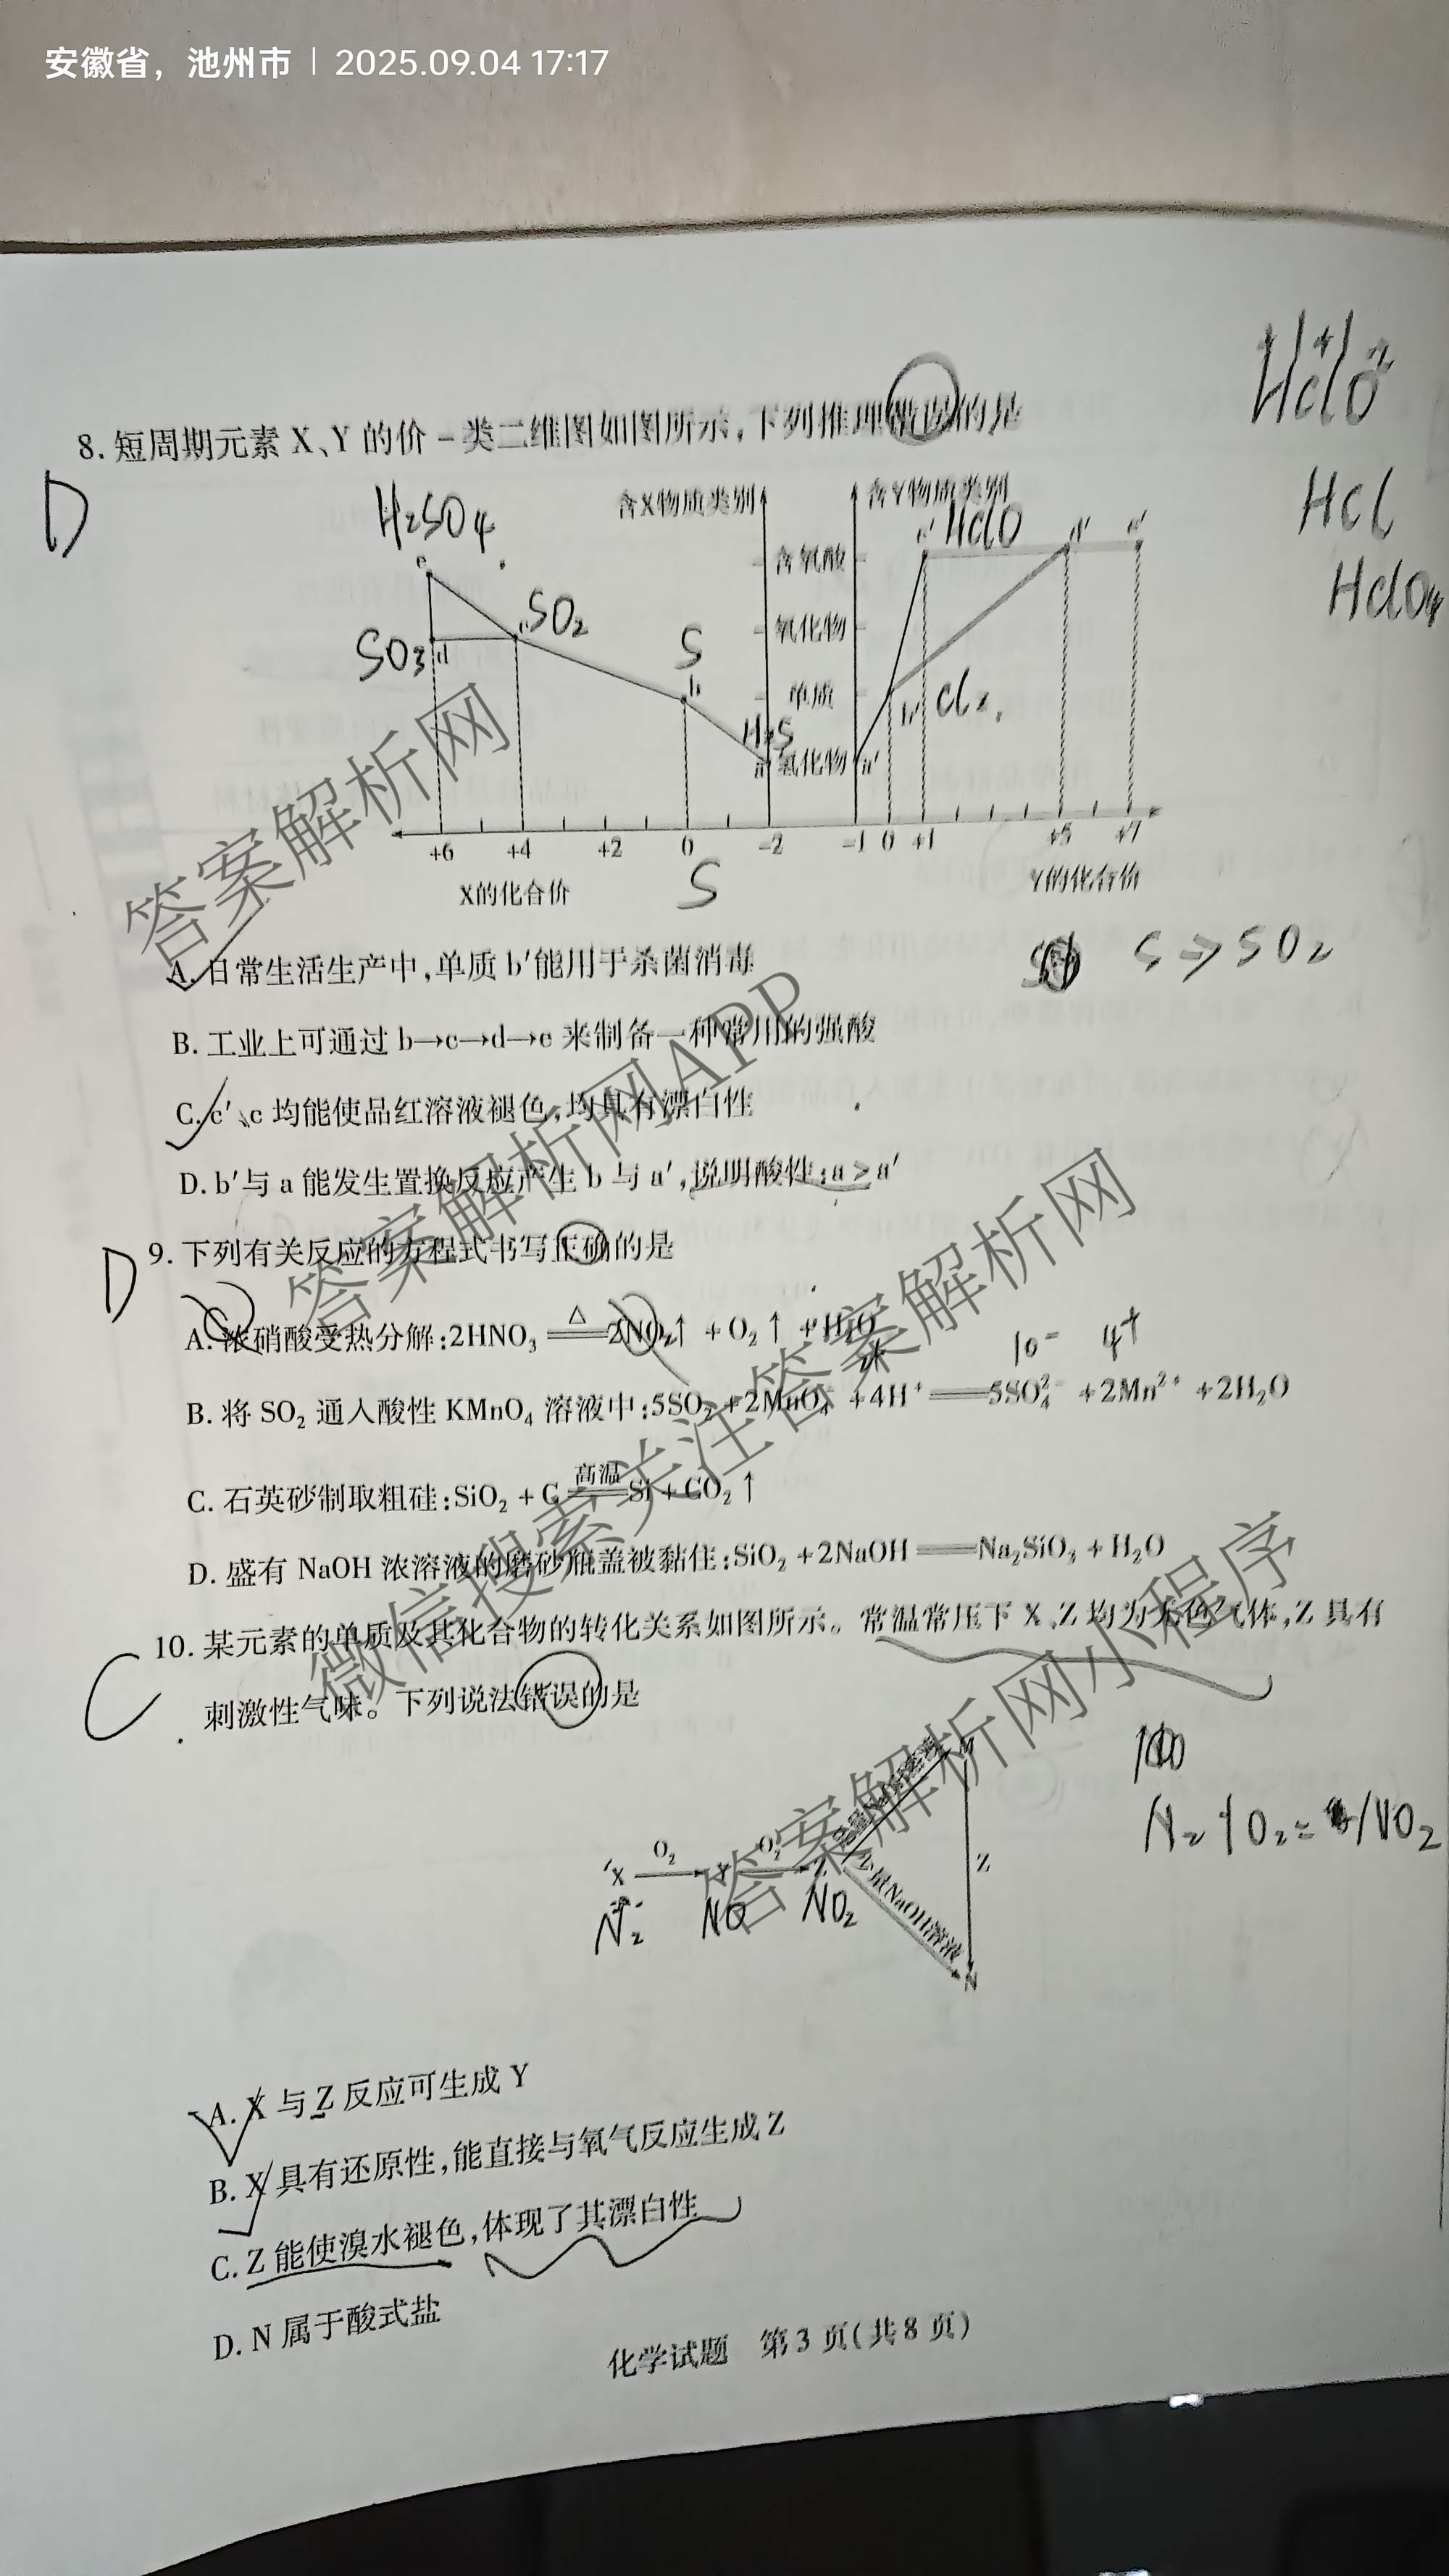 安徽省，池州市 | 2025.09.04 17:17
HClO
8. 短周期元素 X、Y 的价－类二维图如图所示,下列推理错误的是
D
HCl
HClO4
H2SO4
含X物质类别
含Y物质类别
e
c' HClO d' e'
含氧酸
SO3 d
c SO2
氧化物
S
b
单质
b' Cl2
H2S
a 氢化物 a'
+6 +4 +2 0 -2 -1 0 +1 +5 +7
X的化合价
S
Y的化合价
S → SO2
A. 日常生活生产中,单质 b'能用于杀菌消毒
B. 工业上可通过 b→c→d→e 来制备一种常用的强酸
C. c'、c 均能使品红溶液褪色,均具有漂白性
D. b'与 a 能发生置换反应产生 b 与 a',说明酸性:a > a'
D
9. 下列有关反应的方程式书写正确的是
A. 浓硝酸受热分解:2HNO₃ =△= 2NO₂↑ + O₂↑ + H₂O
10- 4+
B. 将 SO₂ 通入酸性 KMnO₄ 溶液中:5SO₂ + 2MnO₄⁻ + 4H⁺ == 5SO₄²⁻ + 2Mn²⁺ + 2H₂O
C. 石英砂制取粗硅:SiO₂ + C =高温= Si + CO₂↑
D. 盛有 NaOH 浓溶液的磨砂瓶盖被黏住:SiO₂ + 2NaOH == Na₂SiO₃ + H₂O
C
10. 某元素的单质及其化合物的转化关系如图所示。常温常压下 X、Z 均为无色气体,Z 具有
刺激性气味。下列说法错误的是
N2 + O2 = NO2
X O₂ Y O₂ Z
N2 NO NO2
M
Z
少量NaOH溶液
N
A. X 与 Z 反应可生成 Y
B. X 具有还原性,能直接与氧气反应生成 Z
C. Z 能使溴水褪色,体现了其漂白性
D. N 属于酸式盐
化学试题 第 3 页(共 8 页)
答案解析网
答案解析网APP
微信搜索关注答案解析网
答案解析网小程序